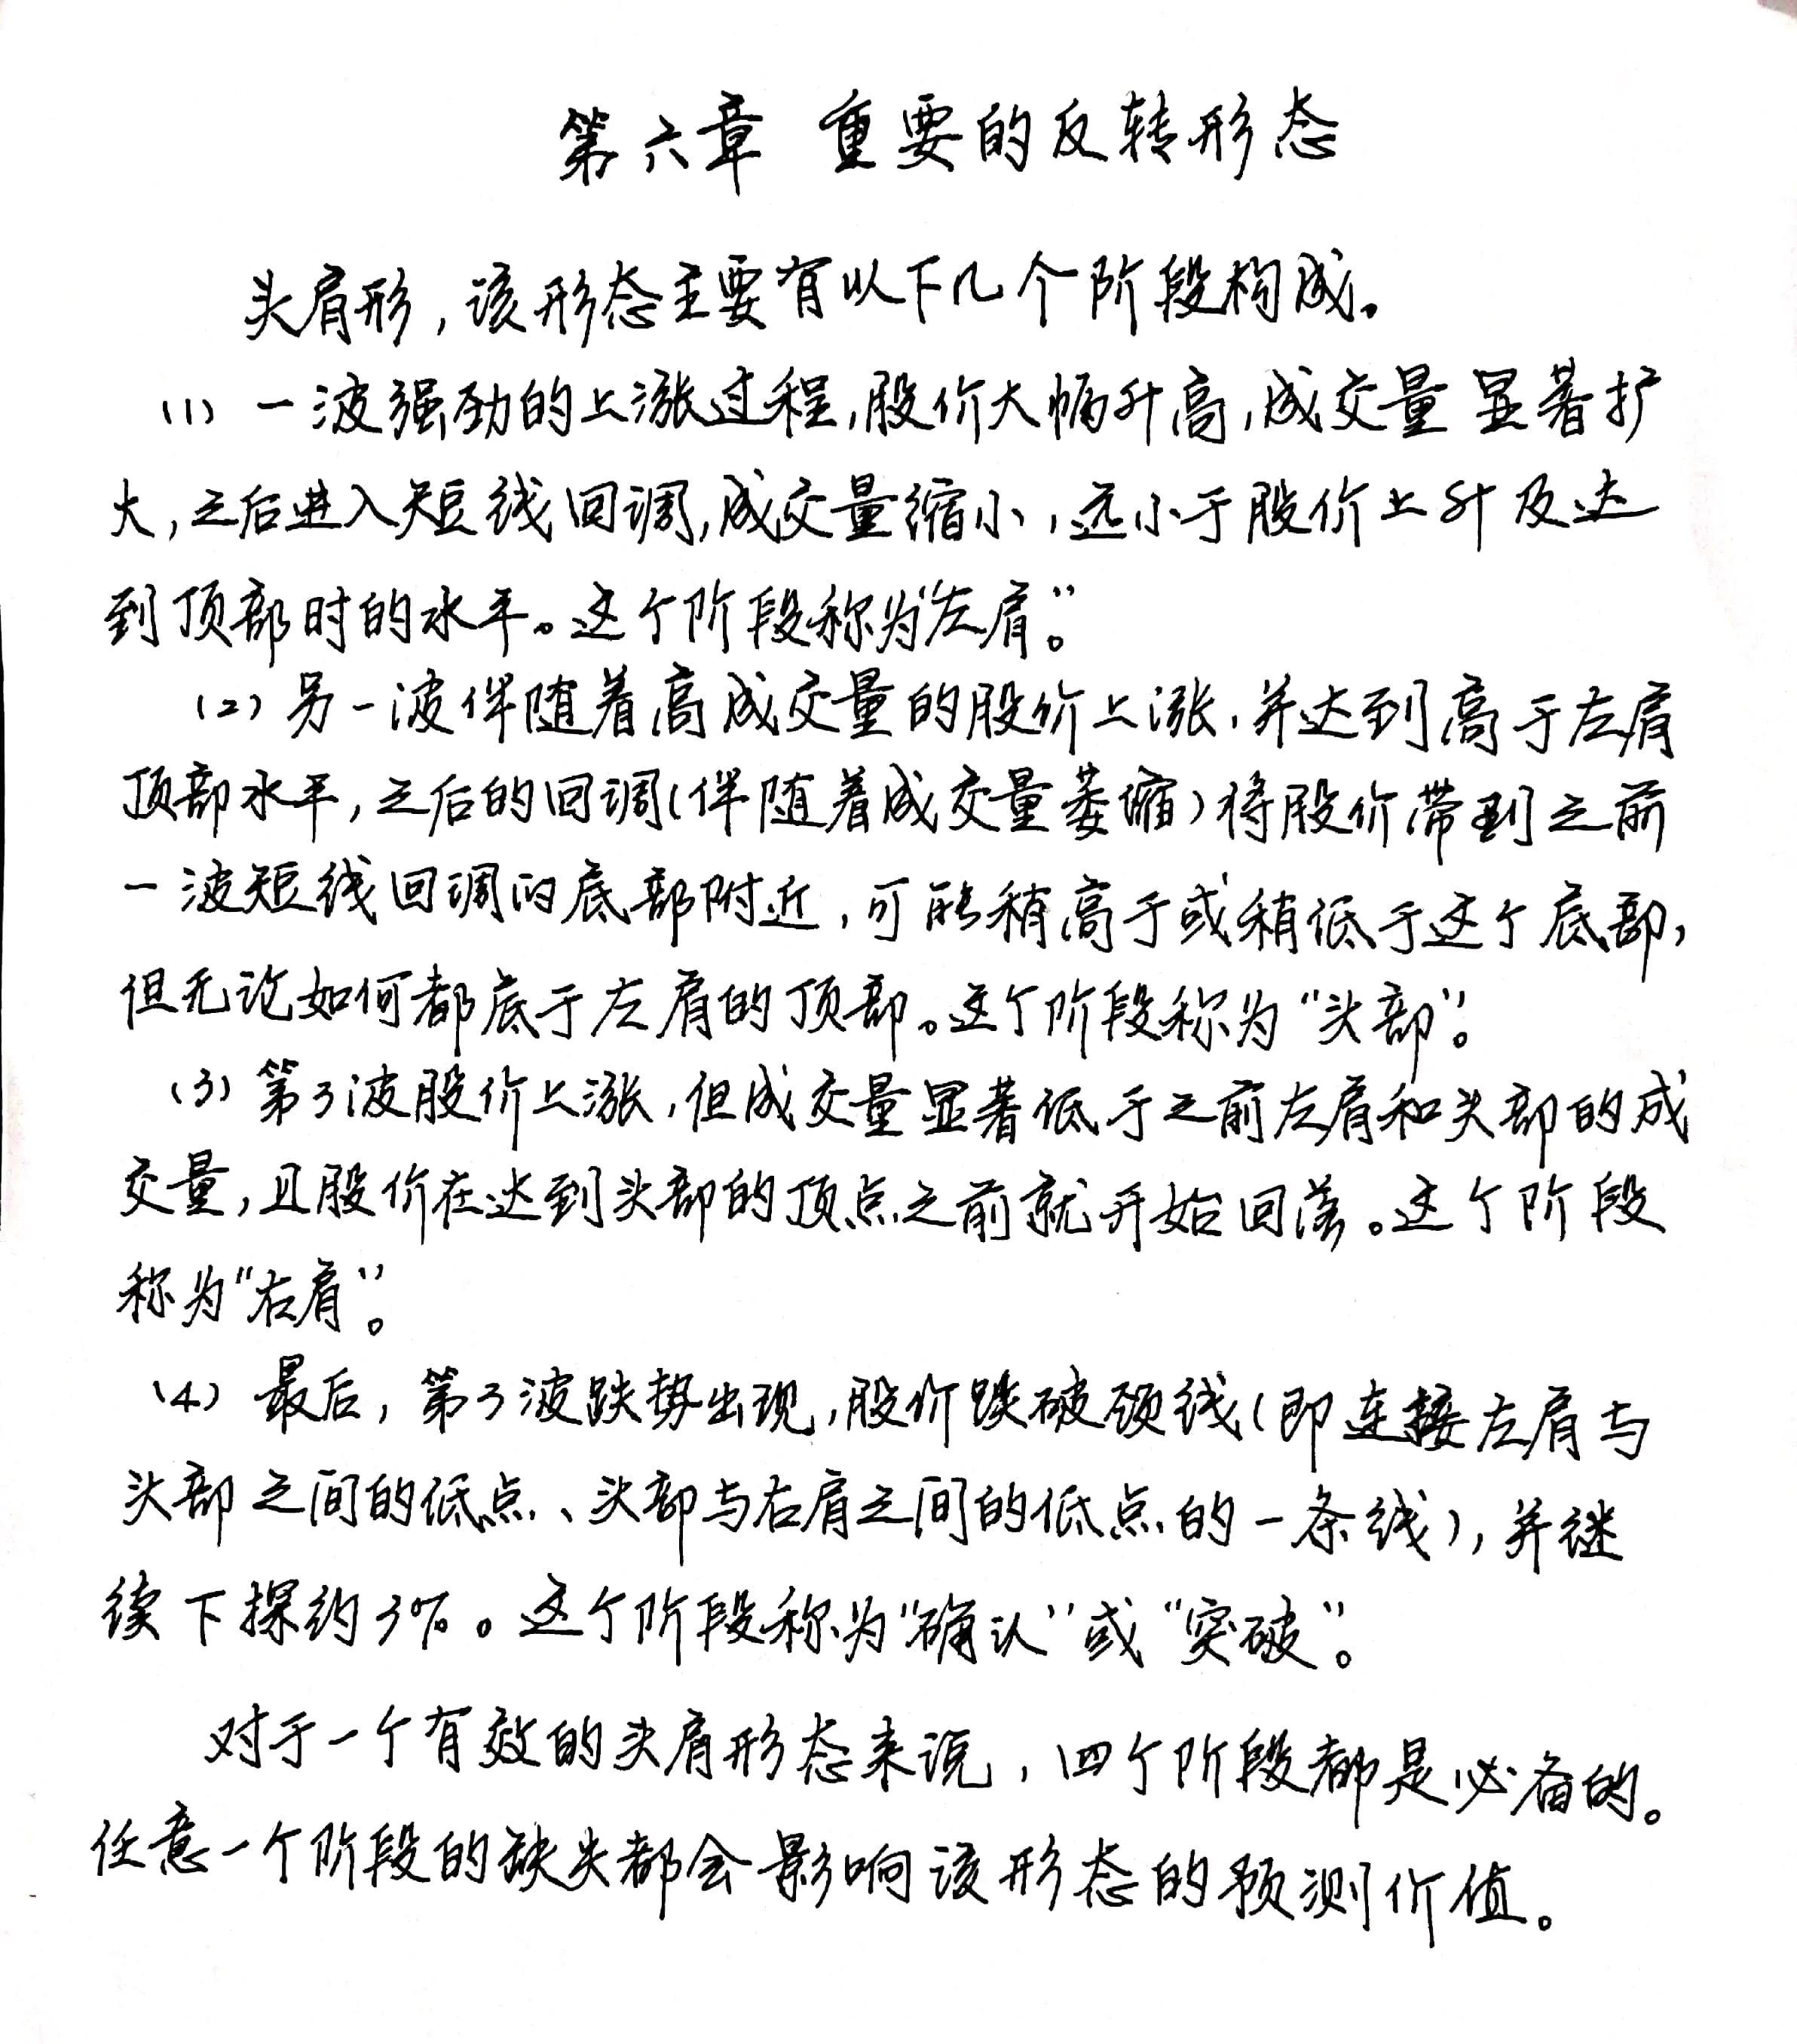 第六章 重要的反转形态
头肩形，该形态主要有以下几个阶段构成。
(1) 一波强劲的上涨过程，股价大幅升高，成交量显著扩
大，之后进入短线回调，成交量缩小，远小于股价上升及达
到顶部时的水平。这个阶段称为“左肩”。
(2) 另一波伴随着高成交量的股价上涨，并达到高于左肩
顶部水平，之后的回调(伴随着成交量萎缩)将股价带到之前
一波短线回调的底部附近，可能稍高于或稍低于这个底部，
但无论如何都底于左肩的顶部。这个阶段称为“头部”。
(3) 第3波股价上涨，但成交量显著低于之前左肩和头部的成
交量，且股价在达到头部的顶点之前就开始回落。这个阶段
称为“右肩”。
(4) 最后，第3波跌势出现，股价跌破颈线(即连接左肩与
头部之间的低点、头部与右肩之间的低点的一条线)，并继
续下探约3%。这个阶段称为“确认”或“突破”。
对于一个有效的头肩形态来说，四个阶段都是必备的。
任意一个阶段的缺失都会影响该形态的预测价值。